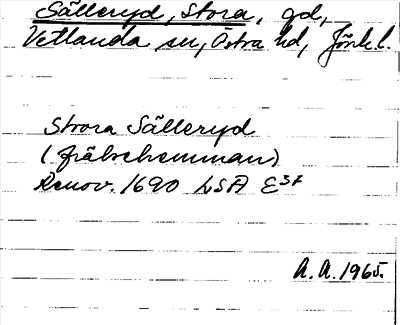 Sälleryd, Stora, gd,
Vetlanda sn, Östra hd, Jönk. l.
Stora Sälleryd
(frälsehemman)
Renov. 1690 LSA E37
A. A. 1965.